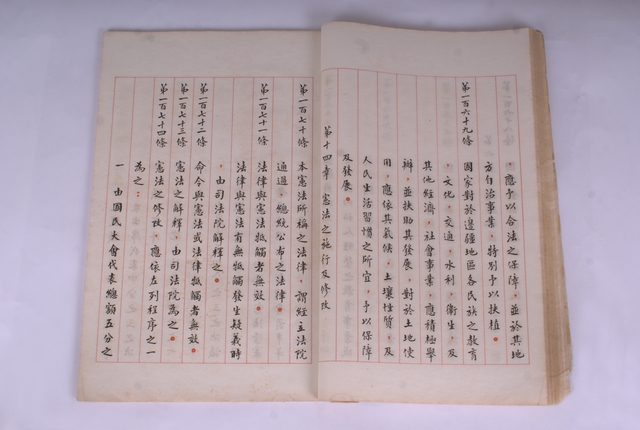 ，應予以合法之保障，並於其地
方自治事業，特別予以扶植。
第一百六十九條
國家對於邊疆地區各民族之教育
，文化，交通，水利，衛生，及
其他經濟，社會事業，應積極舉
辦，並扶助其發展，對於土地使
用，應依其氣候，土壤性質，及
人民生活習慣之所宜，予以保障
及發展。
第十四章 憲法之施行及修改
第一百七十條
本憲法所稱之法律，謂經立法院
通過，總統公布之法律。
第一百七十一條
法律與憲法牴觸者無效。
法律與憲法有無牴觸發生疑義時
，由司法院解釋之。
第一百七十二條
命令與憲法或法律牴觸者無效。
第一百七十三條
憲法之解釋，由司法院為之。
第一百七十四條
憲法之修改，應依左列程序之一
為之：
一 由國民大會代表總額五分之